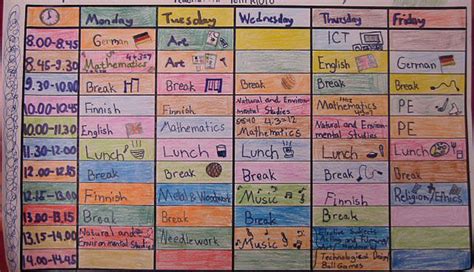 Monday Tuesday Wednesday Thursday Friday
8.00-8.45 German Art ICT
8.45-9.30 Mathematics 4+3=7 Art English German
9.30-10.00 Break Break Break Break Break
10.00-10.45 Finnish Finnish Natural and Environmental Studies Mathematics PE
10.00-11.30 English Mathematics Mathematics 4·3=12 Natural and Environmental Studies PE
11.30-12.00 Lunch Lunch Lunch Lunch Lunch
12.00-12.15 Break Break Break Break Break
12.15-13.00 Finnish Metal & Woodwork Music Finnish Religion/Ethics
13.00-13.15 Break Break Break Break
13.15-14.00 Natural and Environmental Studies Needlework Music Elective Subjects
14.00-14.45 Technological Design
Ball Games